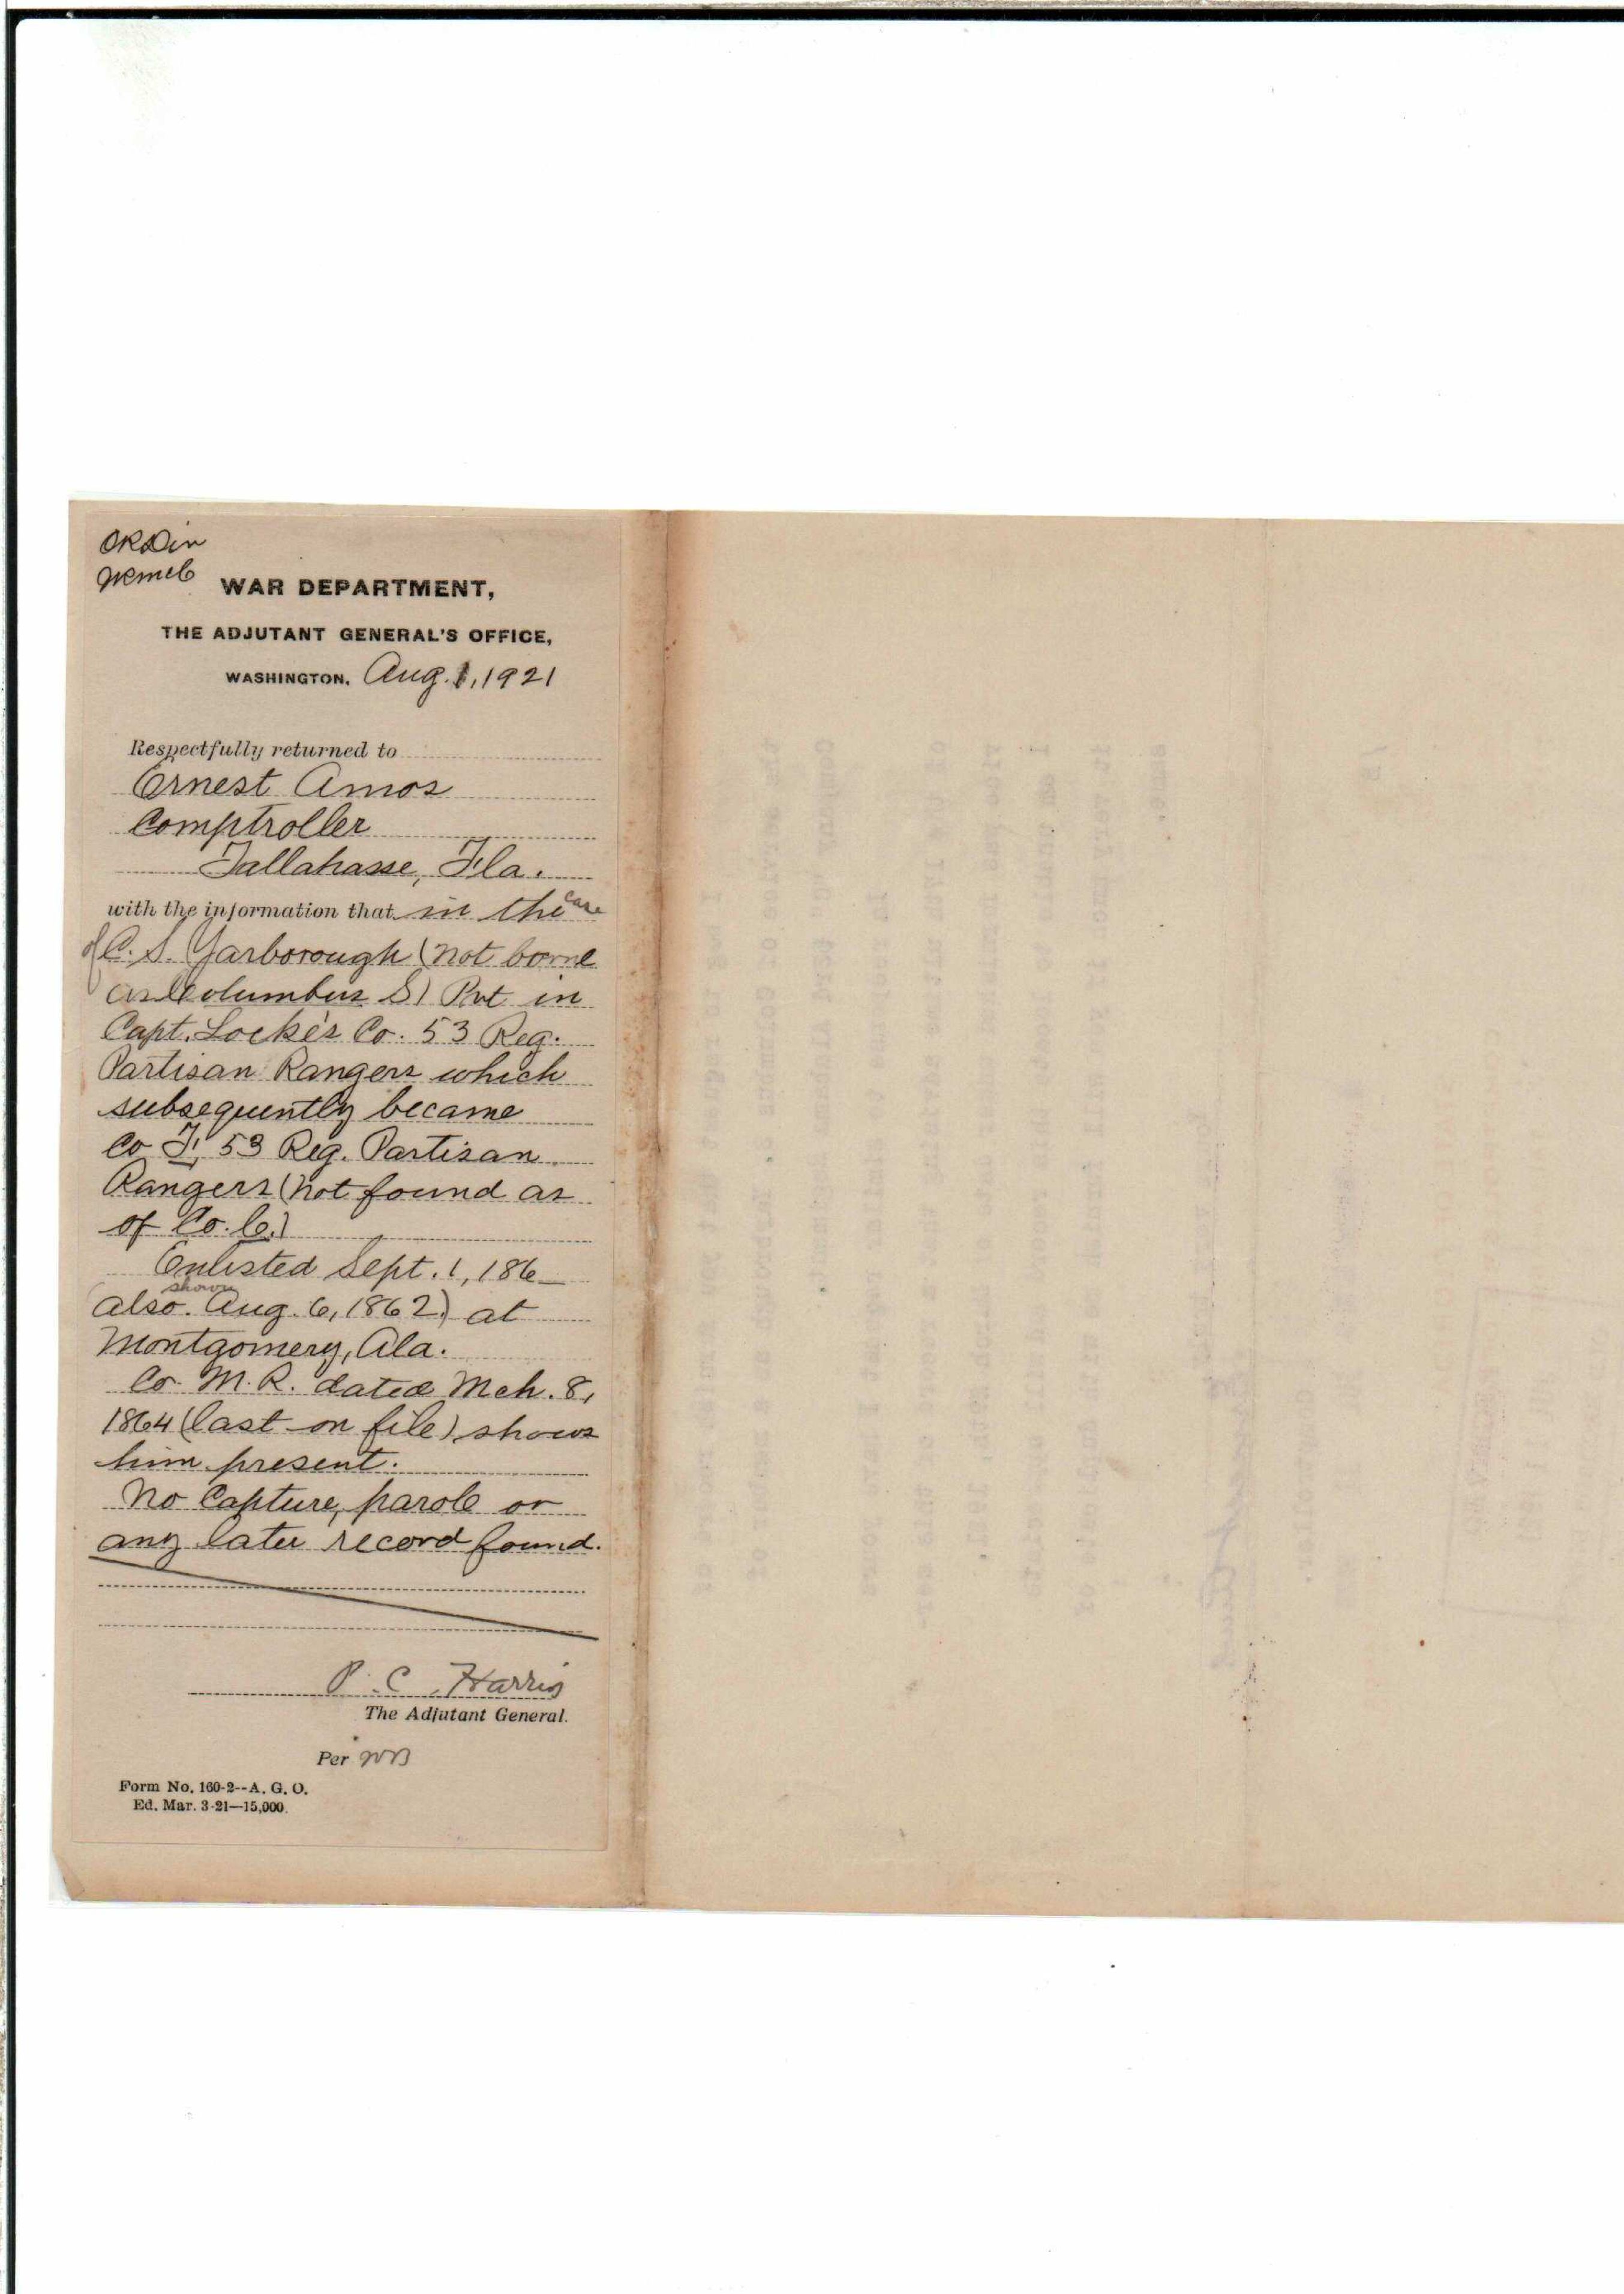 WAR DEPARTMENT,
THE ADJUTANT GENERAL'S OFFICE,
WASHINGTON, Aug. 1, 1921
Respectfully returned to
Ernest Amos
Comptroller
Tallahasse, Fla.
with the information that in the case
of C. S. Yarborough (not borne
as Columbus S) Pvt in
Capt. Locke's Co. 53 Reg.
Partisan Rangers which
subsequently became
Co F, 53 Reg. Partisan
Rangers (not found as
of Co. C.)
Enlisted Sept. 1, 186_
shown
also. Aug. 6, 1862) at
Montgomery, Ala.
Co. M. R. dated Mch. 8,
1864 (last on file) shows
him present.
No Capture, parole or
any later record found.
P. C. Harris
The Adjutant General.
Per
Form No. 160-2--A. G. O.
Ed. Mar. 3-21—15,000.